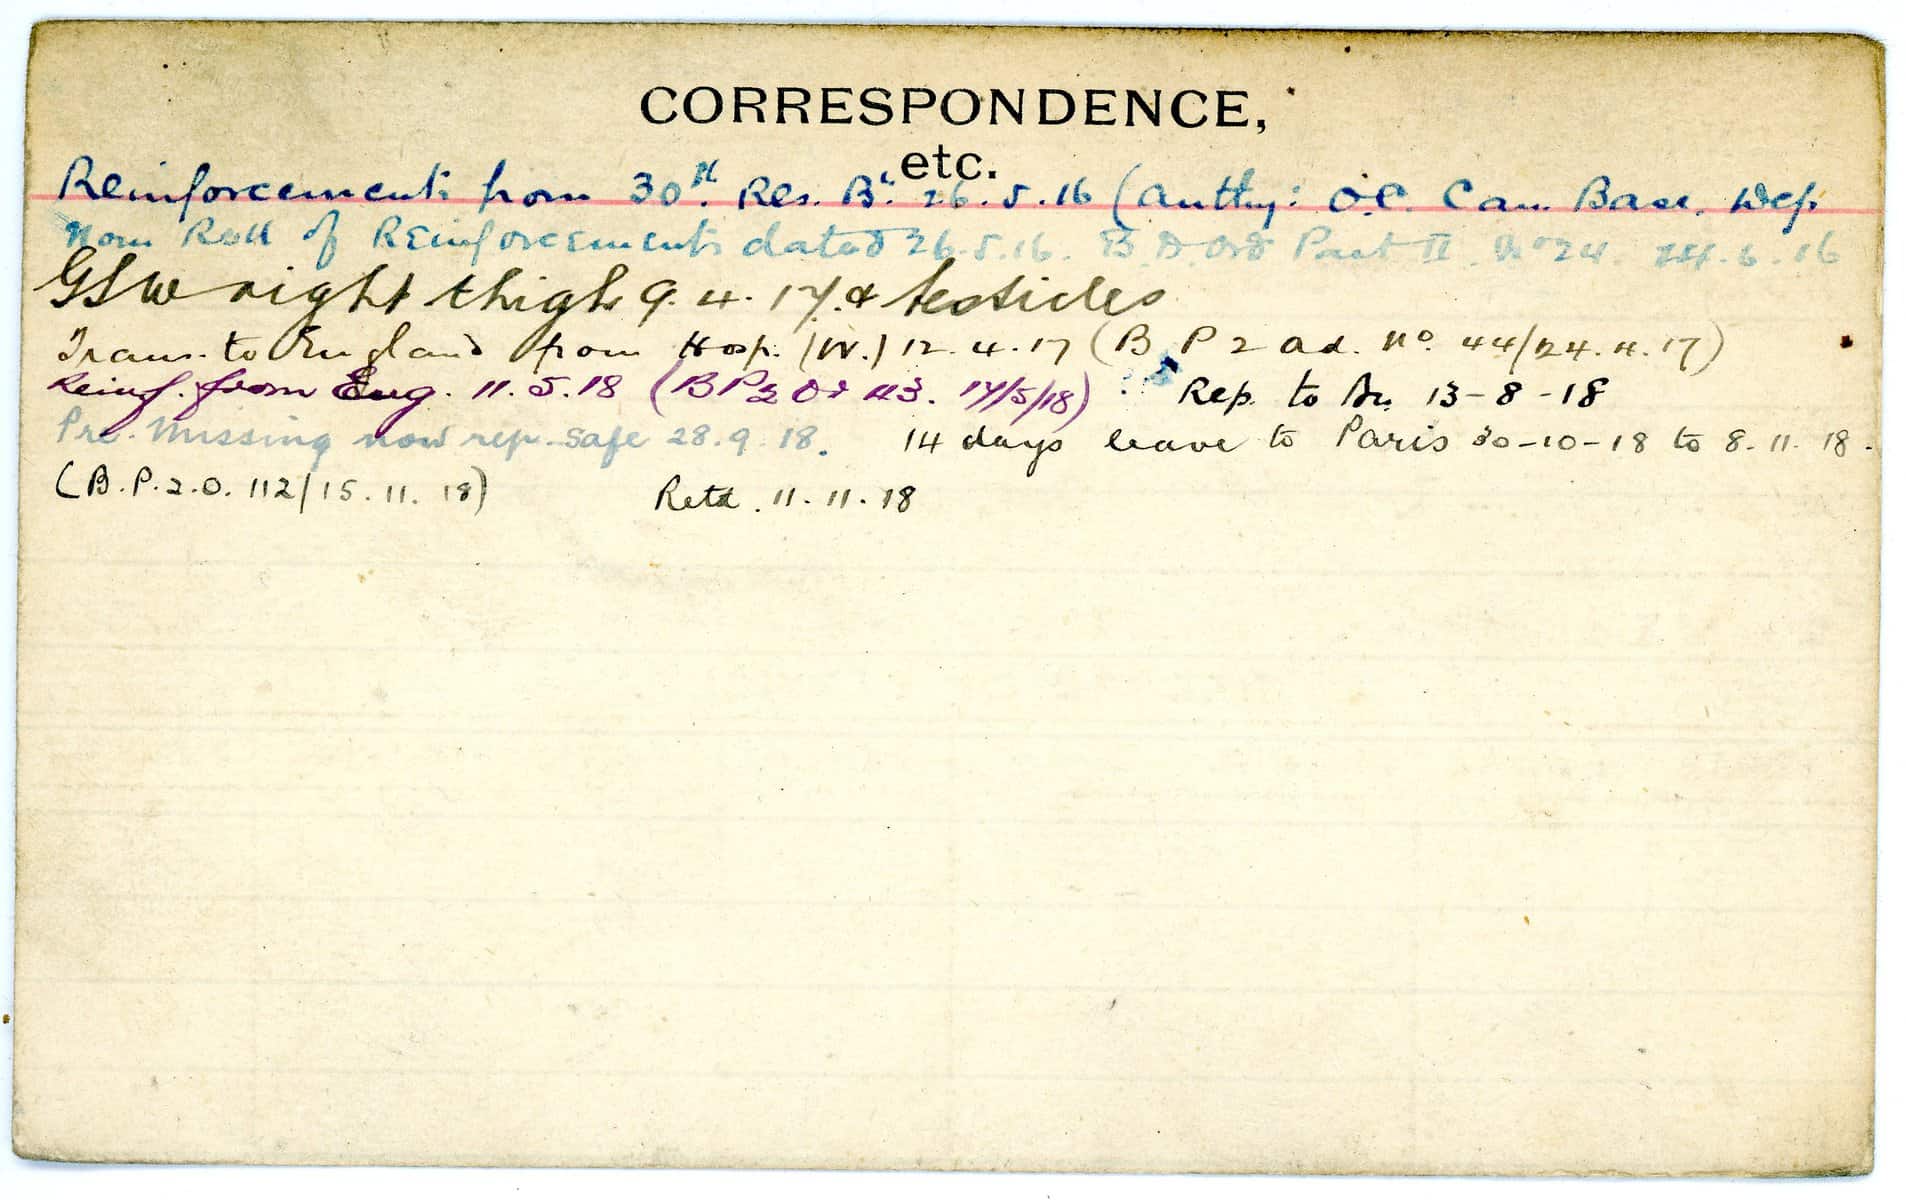 CORRESPONDENCE,
etc.
Reinforcements from 30th. Res. Bn. 26.5.16 (Authy: O.C. Can. Base. Dep.
Nom Roll of Reinforcements dated 26.5.16. B.D. Ord Part II. No 24. 24.6.16
GSW right thigh 9.4.17. & testicles
Trans. to England from Hosp. (W.) 12.4.17 (B P 2 Od. No. 44/24.4.17)
Reinf. from Eng. 11.5.18 (BP2 Od 43. 17/5/18) Rep. to Bn. 13-8-18
Pre. Missing now rep. safe 28.9.18. 14 days leave to Paris 30-10-18 to 8.11.18.
(B.P.2.O. 112/15.11.18) Retd. 11.11.18